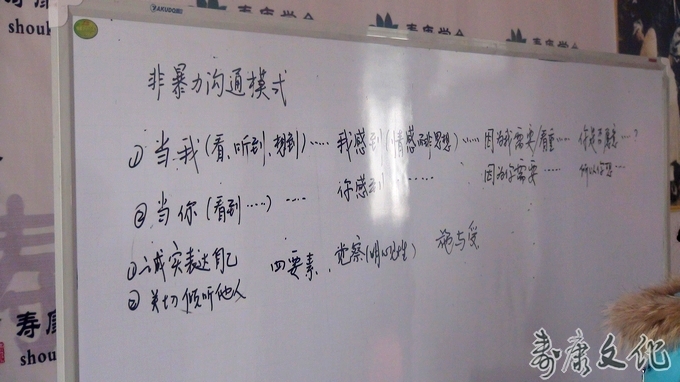 YAKUDO
寿康学会
寿康学会
shouk
非暴力沟通模式
①当我(看、听到、想到)……我感到(情感而非思想)……因为我需要/看重……你是否愿意…?
②当你(看到……)……你感到………因为你需要……所以你想…
①诚实表达自己 四要素、觉察(明心见性) 施与受
②关切倾听他人
寿康
shouk
寿康文化